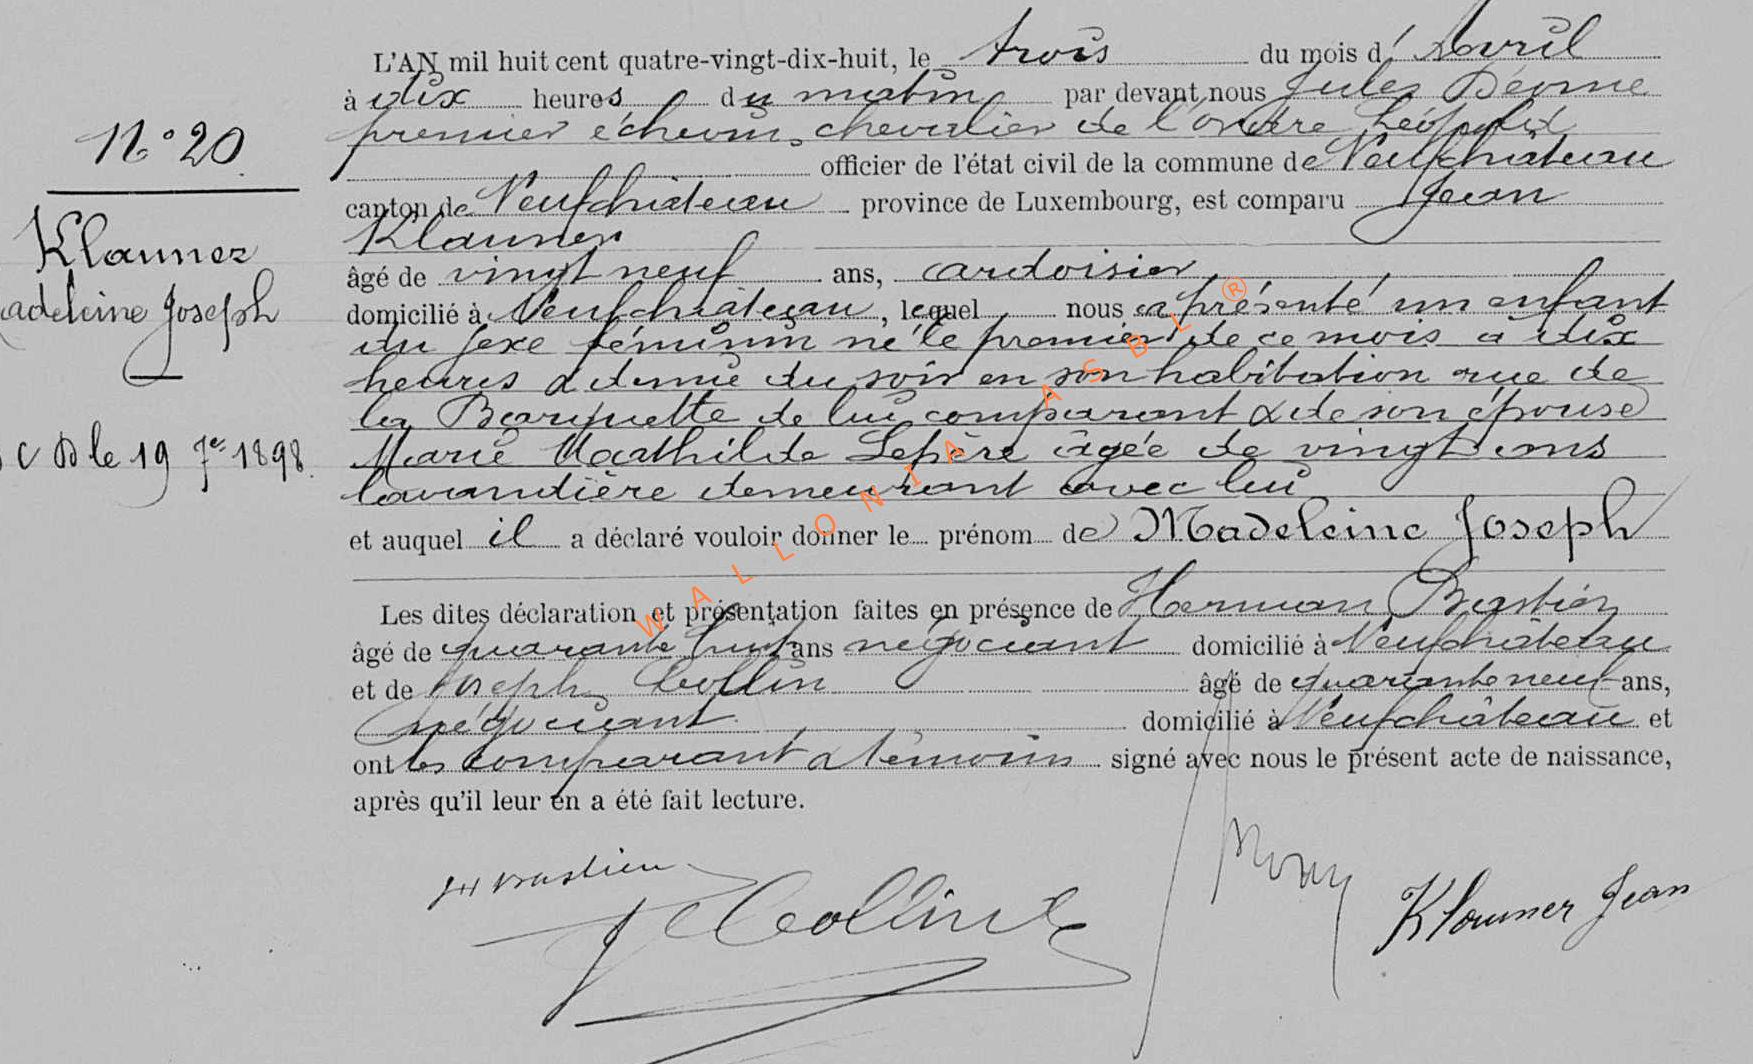 L'AN mil huit cent quatre-vingt-dix-huit, le trois du mois d'Avril
à dix heures du matin par devant nous Jules
premier échevin, chevalier de l'ordre Léopold
officier de l'état civil de la commune de Neufchâteau
canton de Neufchâteau province de Luxembourg, est comparu Jean
Klauner
âgé de vingt neuf ans, ardoisier
domicilié à Neufchâteau, lequel nous a présenté un enfant
du sexe féminin né le premier de ce mois à dix
heures & demie du soir en son habitation rue de
la de lui comparant & de son épouse
Marie Mathilde Lepère âgée de vingt ans
lavandière demeurant avec lui
et auquel il a déclaré vouloir donner le prénom de Madeleine Joseph
Les dites déclaration et présentation faites en présence de Herman Bastien
âgé de quarante huit ans négociant domicilié à Neufchâteau
et de Joseph Collin âgé de quarante neuf ans,
négociant domicilié à Neufchâteau et
ont les comparant & témoins signé avec nous le présent acte de naissance,
après qu'il leur en a été fait lecture.
N° 20
Klauner
adeleine Joseph
le 19 7re 1898.
Bastien
J Collin
Klauner Jean
WALLONIA ASBL ®